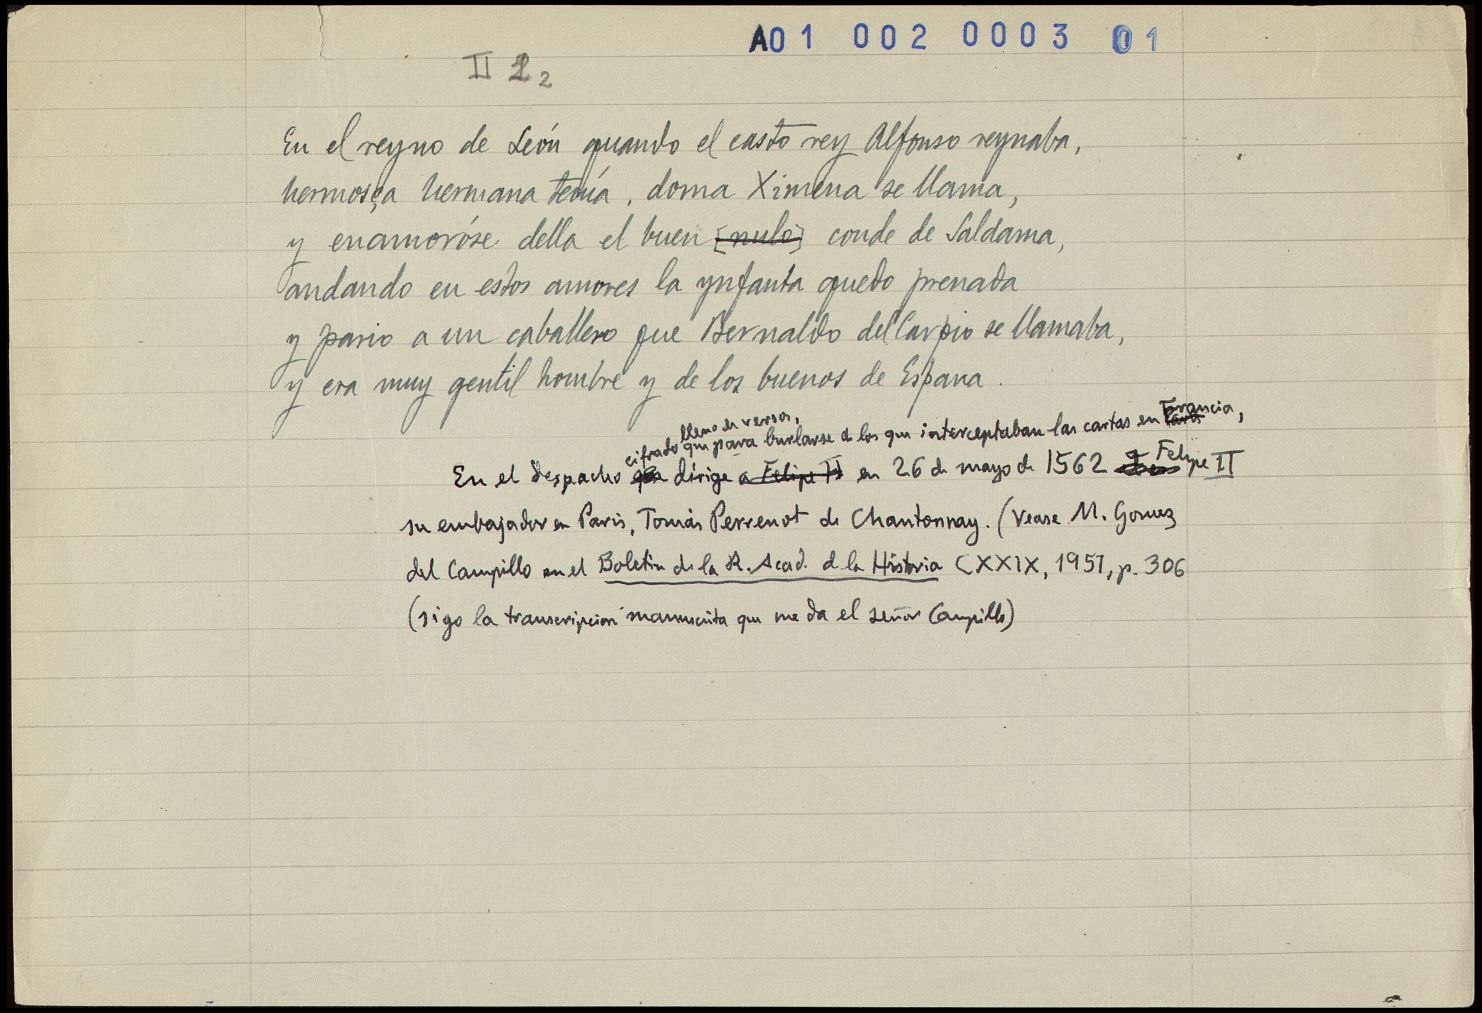 A01 002 0003 01
II 1 2
En el reyno de León quando el casto rey Alfonso reynaba,
hermosa hermana tenía, doma Ximena se llama,
y enamoróse della el buen [nulo] conde de Saldama,
andando en estos amores la ynfanta quedo prenada
y pario a un caballero que Bernaldo del Carpio se llamaba,
y era muy gentil hombre y de los buenos de Espana.
lleno de versos,
cifrado que para burlarse de los que interceptaban las cartas en Francia,
En el despacho que dirige a Felipe II en 26 de mayo de 1562 a Felipe II
su embajador en Paris, Tomás Perrenot de Chantonnay. (Vease M. Gomez
del Campillo en el Boletin de la R. Acad. de la Historia CXXIX, 1951, p. 306
(sigo la transcripcion manuscrita que me da el señor Campillo)